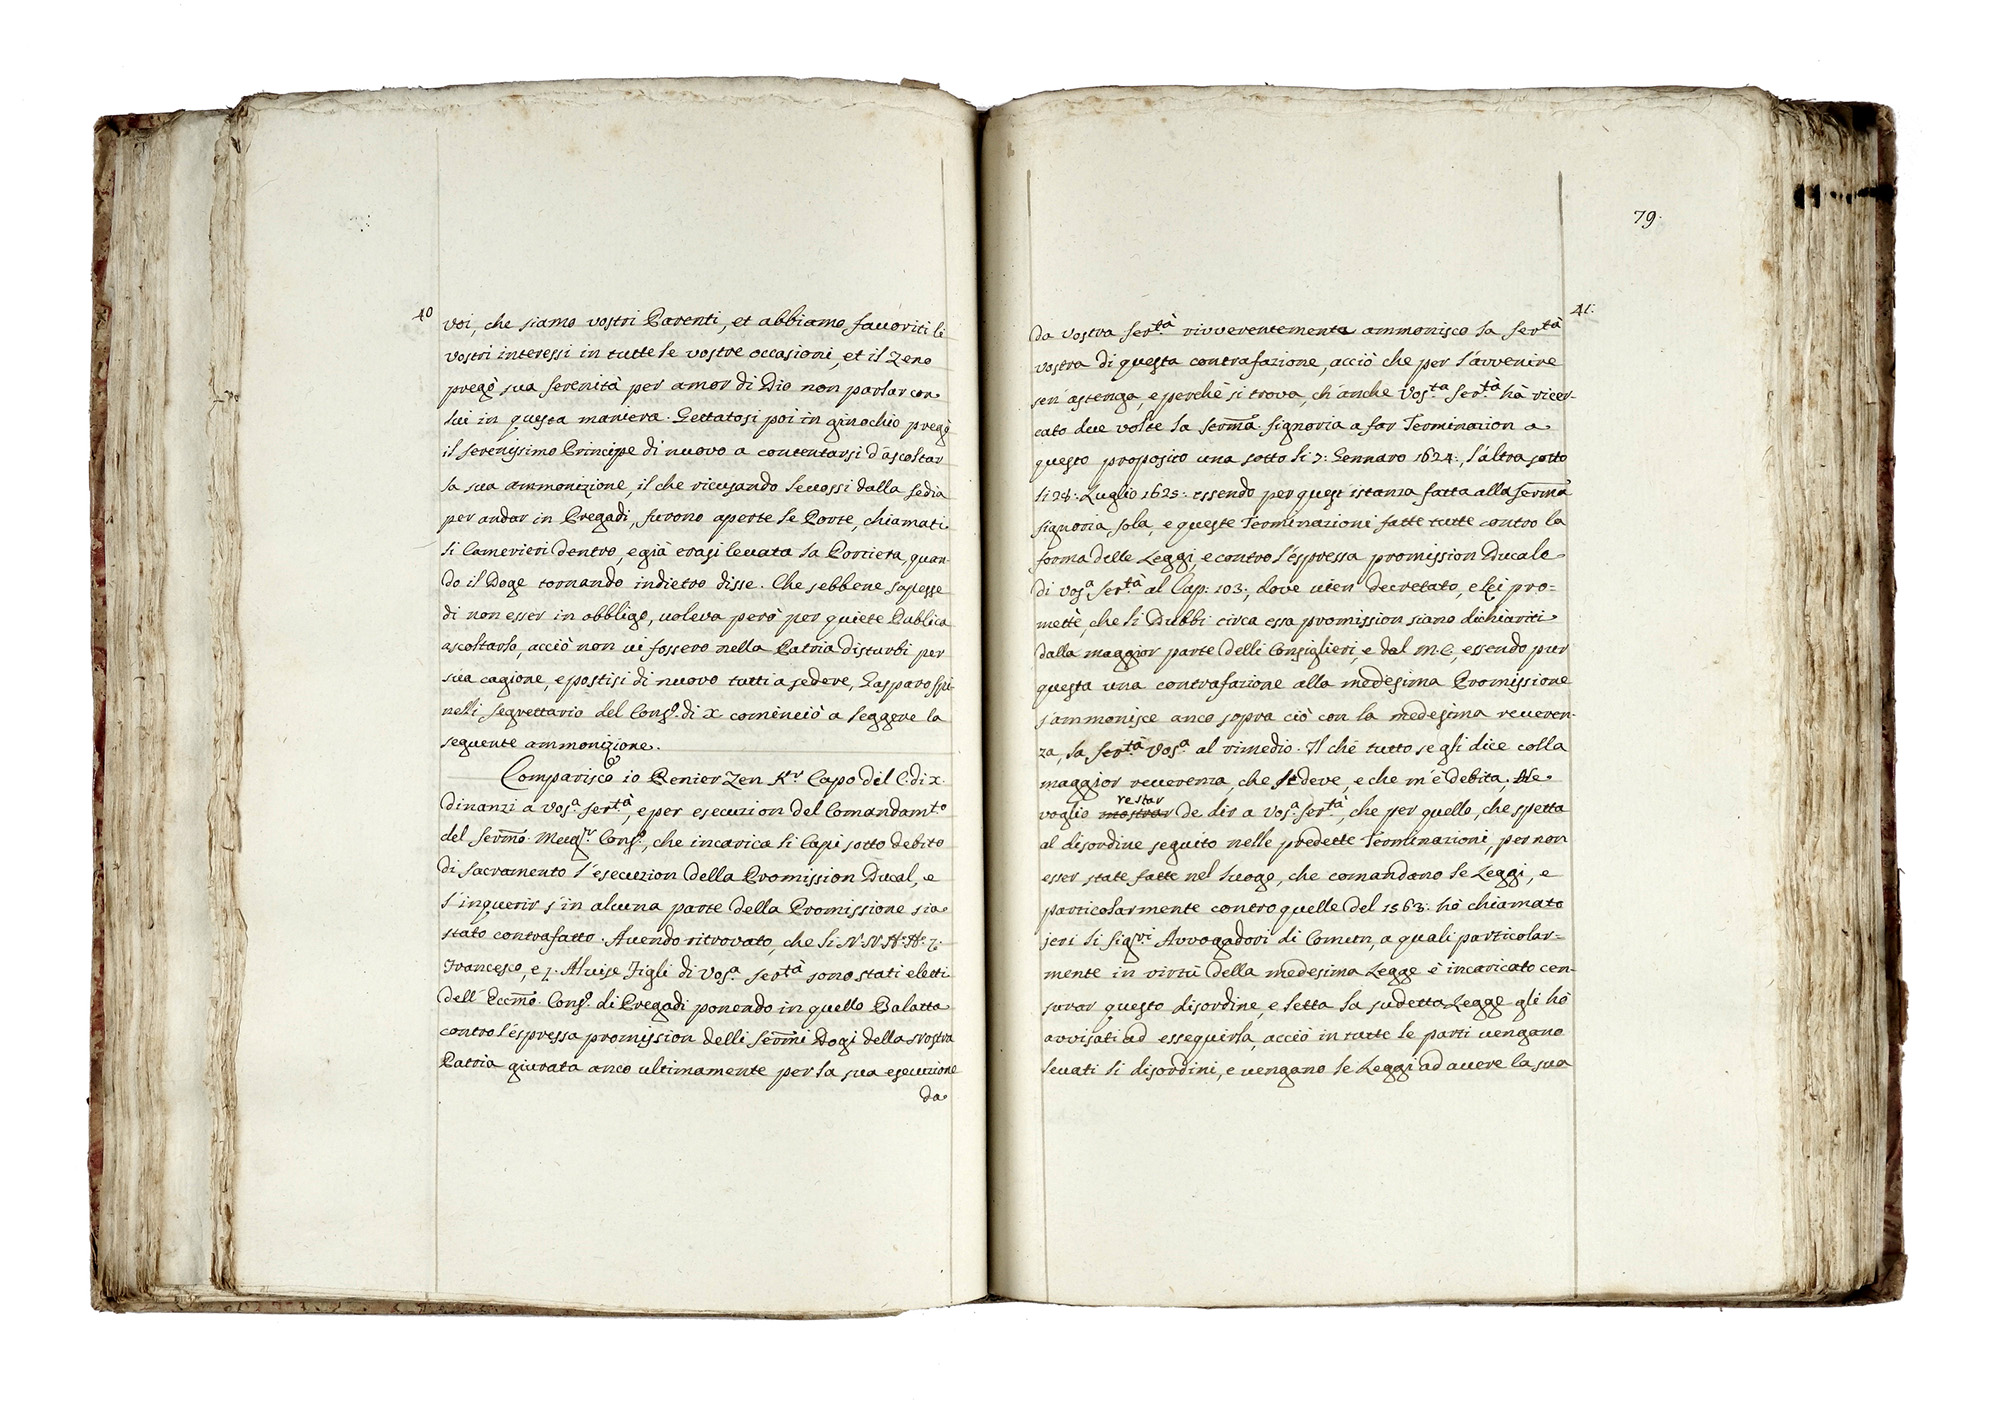 40
voi, che siamo vostri Parenti, et abbiamo favoriti li
vostri interessi in tutte le vostre occasioni, et il Zeno
pregò sua Serenità per amor di Dio non parlar con
lui in questa maniera. Gettatosi poi in ginochio pregò
il Serenissimo Principe di nuovo a contentarsi d'ascoltar
la sua ammonizione, il che ricusando levossi dalla sedia
per andar in Pregadi, furono aperte le Porte, chiamati
li Camerieri dentro, e già erasi levata la Portiera, quan-
do il Doge tornando indietro disse. Che sebbene sapesse
di non esser in obbligo, voleva però per quiete Publica
ascoltarlo, acciò non vi fossero nella Patria disturbi per
sua cagione, e postisi di nuovo tutti a sedere, Gasparo Spi-
nelli Segrettario del Consº. di X. cominciò a leggere la
seguente ammonizione.
Comparisco io Renier Zen Kr. Capo del C. di X.
dinanzi a Vosª. Sertà, e per esecuzion del Comandamto
del Sermo. Magr. Consº., che incarica li Capi sotto debito
di Sacramento l'esecuzion della Promission Ducal, e
l'inquerir s'in alcuna parte della Promissione sia
stato contrafatto. Avendo ritrovato, che li N. N. H. H. z.
Francesco, e z. Aluise Figli di Vosª. Sertà sono stati eletti
dell'Eccmo. Consº. di Pregadi ponendo in quello Balatta
contro l'espressa promission delli Sermi Dogi della Nostra
Patria giurata anco ultimamente per la sua esecuzione
da
79.
41.
da Vostra Sertà rivverentemente ammonisco la Sertà
Vostra di questa contrafazione, acciò che per l'avvenire
sen'astenga, e perchè si trova, ch'anche Vosta Serta hà ricer-
cato due volte la Serma. Signoria a far Terminazion a
questo proposito una sotto li 7: Gennaro 1624:, l'altra sotto
li 28: Luglio 1625: essendo per quest'istanza fatta alla Serma
Signoria sola, e queste Terminazioni fatte tutte contro la
forma delle Leggi, e contro l'espressa promission Ducale
di Vosª. Sertà al Cap: 103:, dove vien decretato, e Lei pro=
mette, che li Dubbi circa essa promission siano dichiariti
dalla maggior parte delli Consiglieri, e dal M. C., essendo pur
questa una contrafazione alla medesima Promissione
s'ammonisce anco sopra ciò con la medesima reveren-
za, la Sertà Vosª. al rimedio. Il che tutto se gli dice colla
maggior reverenza, che si deve, e che m'è debita. Ne
restar
voglio mostrar de dir a Vosª. Sertà, che per quello, che spetta
al disordine seguito nelle predette Terminazioni, per non
esser state fatte nel luogo, che comandano le Leggi, e
particolarmente contro quelle del 1563: hò chiamato
jeri li Sigri Avvogadori di Comun, a quali particolar-
mente in virtù della medesima Legge è incaricato cen-
surar questo disordine, e letta la sudetta Legge gli hò
avvisati ad esseguirla, acciò in tutte le parti vengano
levati li disordini, e vengano le Leggi ad avere la sua